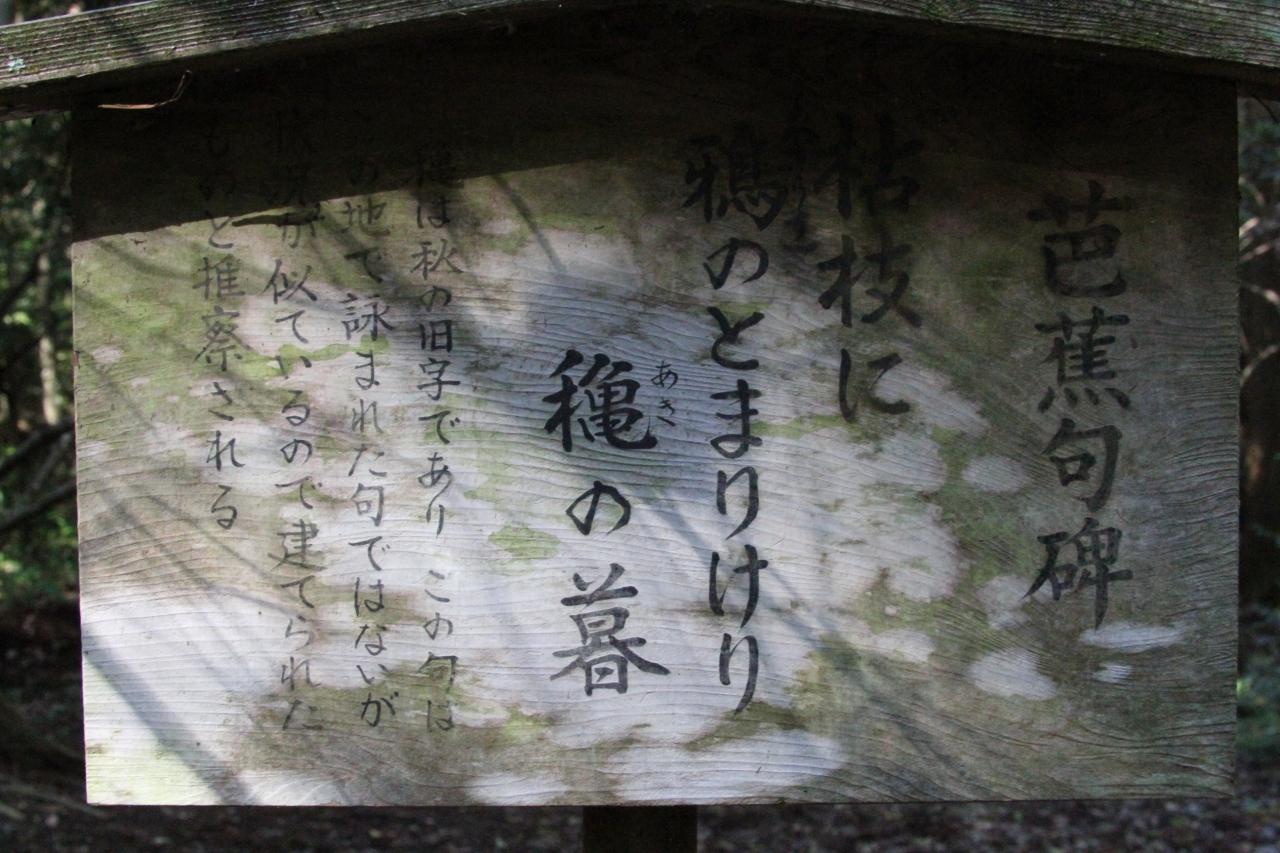 芭蕉句碑
枯枝に
鴉のとまりけり
穐の暮
あき
穐は秋の旧字であり この句は
この地で詠まれた句ではないが
状況が似ているので建てられた
ものと推察される